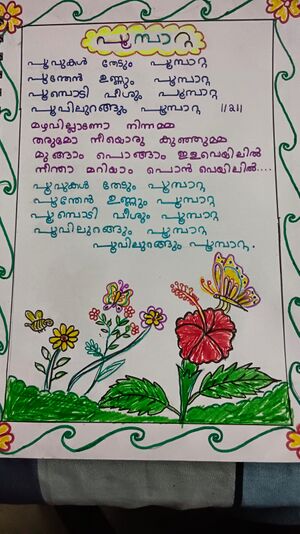 പൂമ്പാറ്റ
പൂവുകൾ തേടും പൂമ്പാറ്റ
പൂന്തേൻ ഉണ്ണും പൂമ്പാറ്റ
പൂമ്പൊടി പൂശും പൂമ്പാറ്റ
പൂവിലുറങ്ങും പൂമ്പാറ്റ ||2||
മഴവില്ലാണോ നിന്നമ്മ
തരുമോ നീയൊരു കുഞ്ഞുമ്മ
മുങ്ങാം പൊങ്ങാം ഇളവെയിലിൽ
നീന്താ മറിയാം പൊൻ വെയിലിൽ....
പൂവുകൾ തേടും പൂമ്പാറ്റ
പൂന്തേൻ ഉണ്ണും പൂമ്പാറ്റ
പൂമ്പൊടി പൂശും പൂമ്പാറ്റ
പൂവിലുറങ്ങും പൂമ്പാറ്റ
പൂവിലുറങ്ങും പൂമ്പാറ്റ.